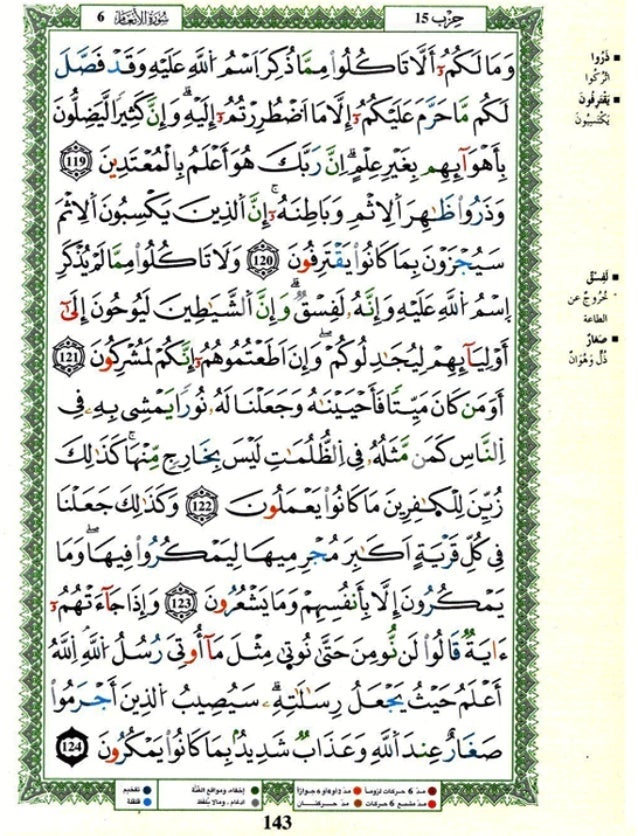 حِزْب 15
سُورَةُ الأَنْعَام 6
وَمَا لَكُمُۥٓ أَلَّا تَاكُلُواْ مِمَّا ذُكِرَ اَسْمُ اُللَّهِ عَلَيْهِ وَقَدْ فَصَّلَ
لَكُم مَّا حَرَّمَ عَلَيْكُمُۥٓ إِلَّا مَا اَضْطُرِرْتُمُۥٓ إِلَيْهِۖ وَإِنَّ كَثِيراٗ لَّيَضِلُّونَ
بِأَهْوَآئِهِم بِغَيْرِ عِلْمٍۖ اِنَّ رَبَّكَ هُوَ أَعْلَمُ بِالْمُعْتَدِينَ 119
وَذَرُواْ ظَٰهِرَ اَلِاثْمِ وَبَاطِنَهُۥٓۚ إِنَّ اَلذِينَ يَكْسِبُونَ اَلِاثْمَ
سَيُجْزَوْنَ بِمَا كَانُواْ يَقْتَرِفُونَ 120 وَلَا تَاكُلُواْ مِمَّا لَمْ يُذْكَرِ
اِسْمُ اُللَّهِ عَلَيْهِ وَإِنَّهُۥ لَفِسْقٞۖ وَإِنَّ اَلشَّيَٰطِينَ لَيُوحُونَ إِلَىٰٓ
أَوْلِيَآئِهِمْ لِيُجَٰدِلُوكُمْۖ وَإِنَ اَطَعْتُمُوهُمُۥٓ إِنَّكُمْ لَمُشْرِكُونَ 121
أَوَمَن كَانَ مَيِّتاٗ فَأَحْيَيْنَٰهُ وَجَعَلْنَا لَهُۥ نُوراٗ يَمْشِي بِهِۦ فِي
اِلنَّاسِ كَمَن مَّثَلُهُۥ فِي اِلظُّلُمَٰتِ لَيْسَ بِخَارِجٖ مِّنْهَاۚ كَذَٰلِكَ
زُيِّنَ لِلْكَٰفِرِينَ مَا كَانُواْ يَعْمَلُونَ 122 وَكَذَٰلِكَ جَعَلْنَا
فِي كُلِّ قَرْيَةٍ اَكَٰبِرَ مُجْرِمِيهَا لِيَمْكُرُواْ فِيهَاۖ وَمَا
يَمْكُرُونَ إِلَّا بِأَنفُسِهِمْ وَمَا يَشْعُرُونَ 123 وَإِذَا جَآءَتْهُمُۥٓ
ءَايَةٞ قَالُواْ لَن نُّومِنَ حَتَّىٰ نُوتَىٰ مِثْلَ مَآ أُوتِيَ رُسُلُ اُللَّهِۖ اِللَّهُ
أَعْلَمُ حَيْثُ يَجْعَلُ رِسَٰلَٰتِهِۦۖ سَيُصِيبُ اُلذِينَ أَجْرَمُواْ
صَغَارٌ عِندَ اَللَّهِ وَعَذَابٞ شَدِيدُۢ بِمَا كَانُواْ يَمْكُرُونَ 124
■ ذَرُوا
اتْرُكُوا
■ يَقْتَرِفُونَ
يَكْتَسِبُونَ
■ لَفِسْقٌ
خُرُوجٌ عن
الطاعة
■ صَغَارٌ
ذُلٌّ وَهَوَانٌ
مدّ 6 حركات لزوماً مدّ 2 أو 4 أو 6 جوازاً إخفاء، ومواقع الغنّة تفخيم
مدّ مشبع 6 حركات مدّ حركتان إدغام، وما لا يلفظ قلقلة
143